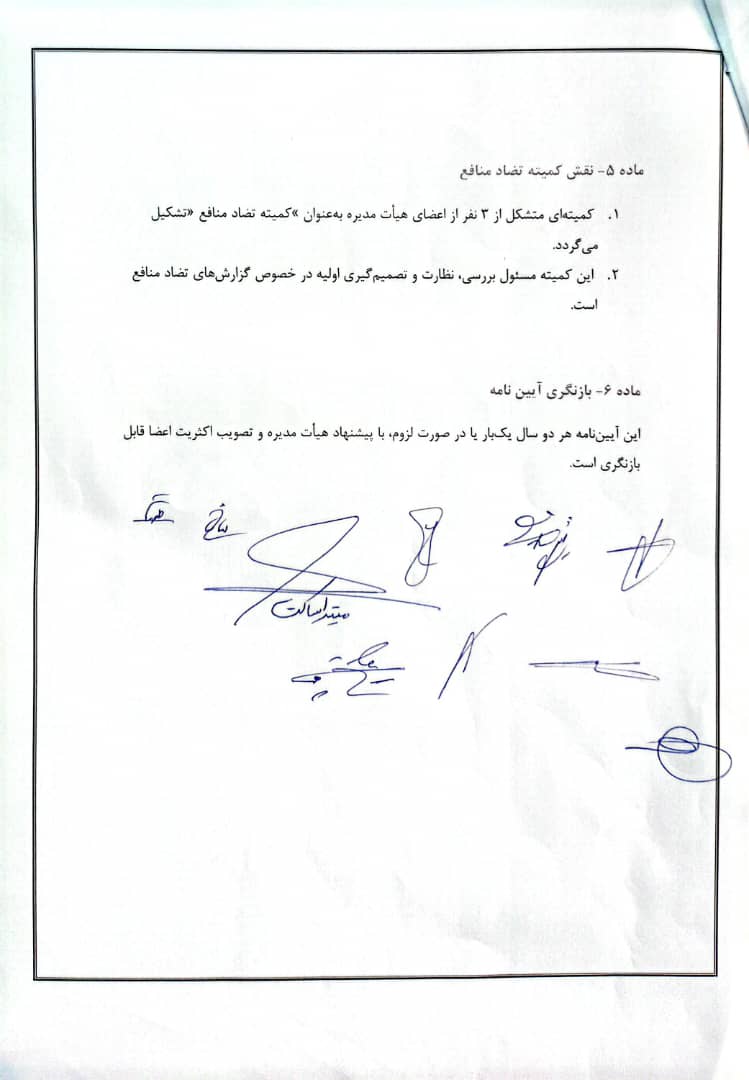 ماده ۵- نقش کمیته تضاد منافع
۱. کمیته‌ای متشکل از ۳ نفر از اعضای هیأت مدیره به‌عنوان »کمیته تضاد منافع «تشکیل
می‌گردد.
۲. این کمیته مسئول بررسی، نظارت و تصمیم‌گیری اولیه در خصوص گزارش‌های تضاد منافع
است.
ماده ۶- بازنگری آیین نامه
این آیین‌نامه هر دو سال یک‌بار یا در صورت لزوم، با پیشنهاد هیأت مدیره و تصویب اکثریت اعضا قابل
بازنگری است.